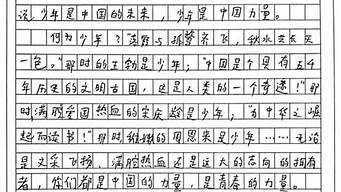 说，少年是中国的未来，少年是中国力量。
何为少年？"落霞与孤鹜齐飞，秋水共长天
一色。"那时的王勃是少年；"中国是个具有五千
年历史的文明古国，这是人类的一个奇迹！"那
时满腔爱国热血的宋庆龄是少年；"为中华之崛
起而读书！"那时稚嫩的周恩来是少年……无论
是文采飞扬、满腔热血还是远大的志向的拥有
者，你们都是中国的力量，是青春的力量。